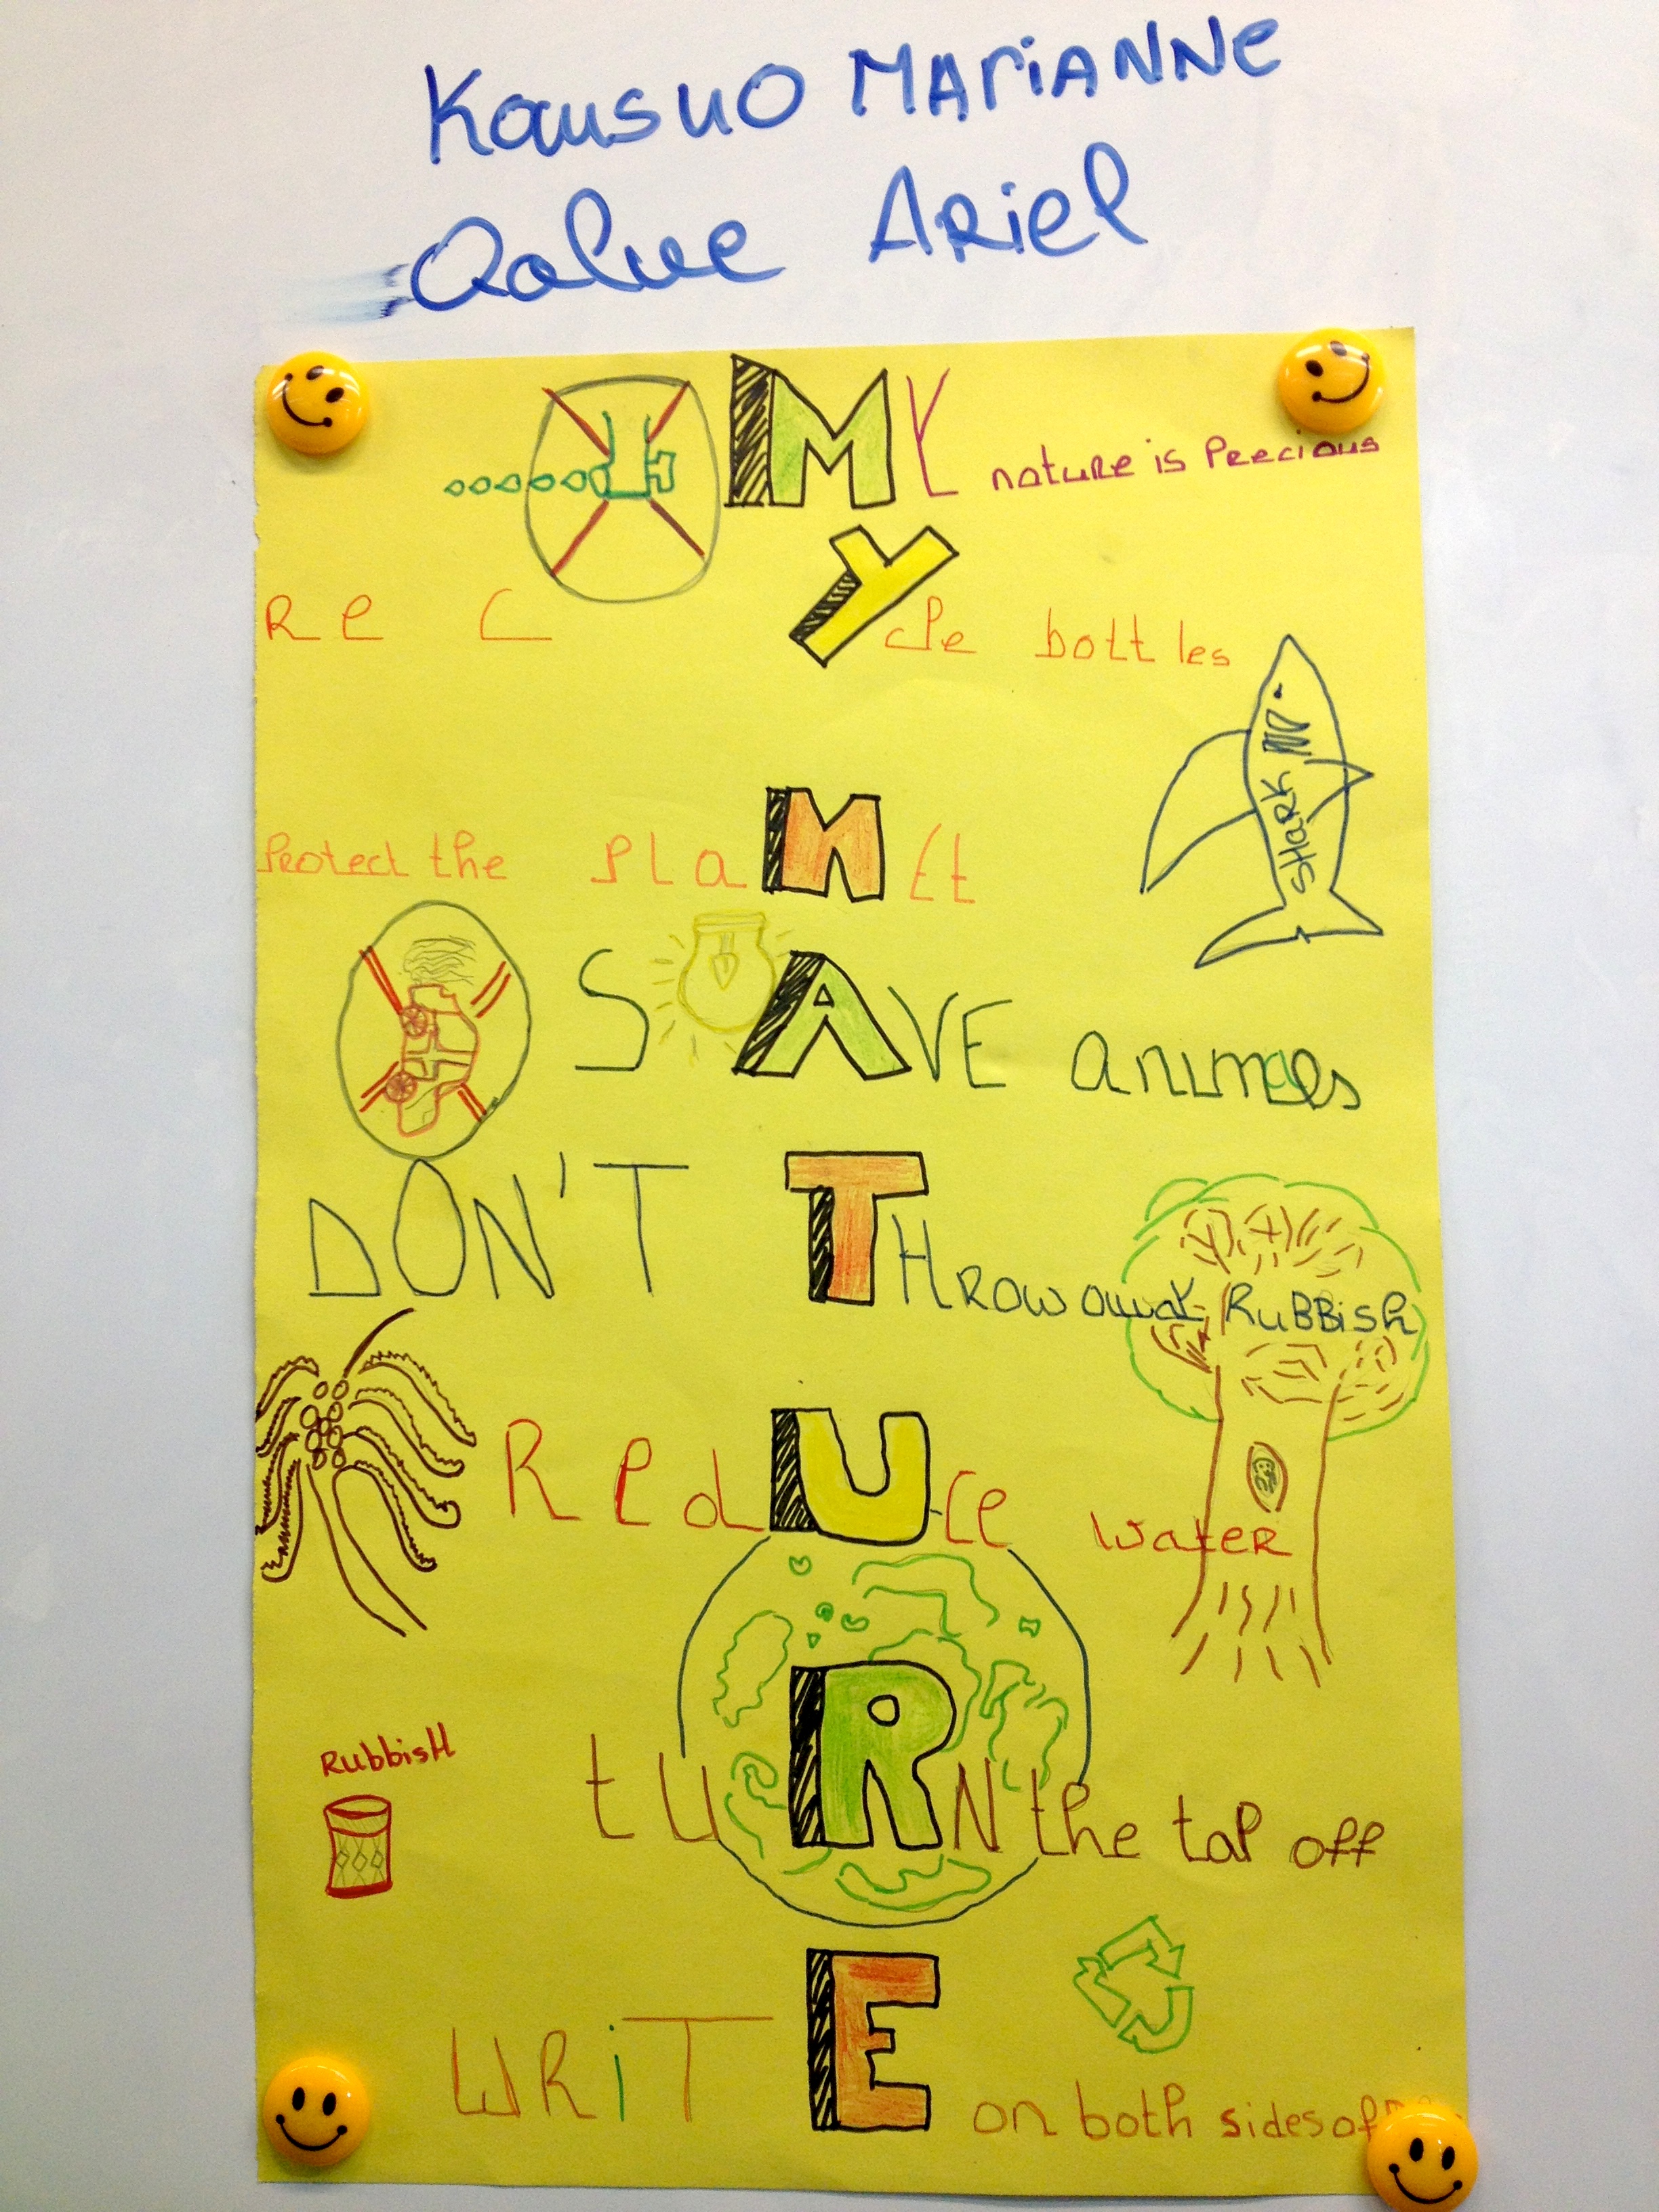 Kousuo MARiANNe
Ariel
MY nature is Precious
Recycle bottles
Protect the PlaNEt
SHARK
SAVE animals
DON'T THROW away RuBBish
RedUce water
RubbisH
tuRN the tap off
WRiTE on both sides of